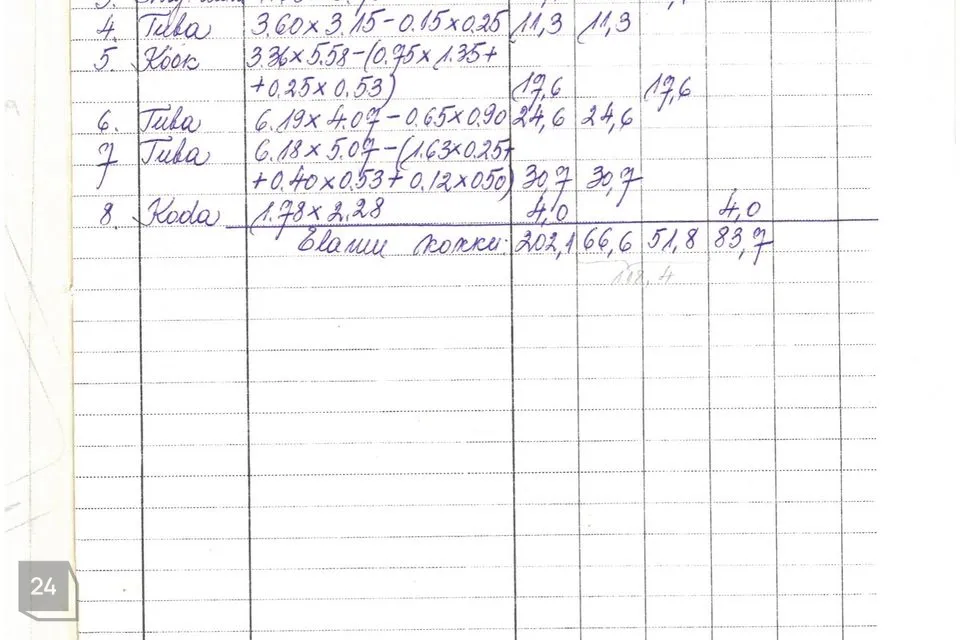 4. Tuba 3.60×3.15-0.15×0.25 11,3 11,3
5. Köök 3.36×5.58-(0.75×1.35+
+0.25×0.53) 17,6 17,6
6. Tuba 6.19×4.07-0.65×0.90 24,6 24,6
7 Tuba 6.18×5.07-(1.63×0.25+
+0.40×0.53+0.12×050) 30,7 30,7
8. Koda 1.78×2.28 4,0 4,0
kokku: 202,1 66,6 51,8 83,7
24